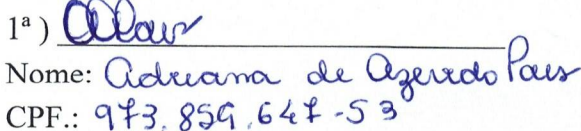 1ª)
Nome: Adriana de Azevedo Pais
CPF.: 973.859.647-53